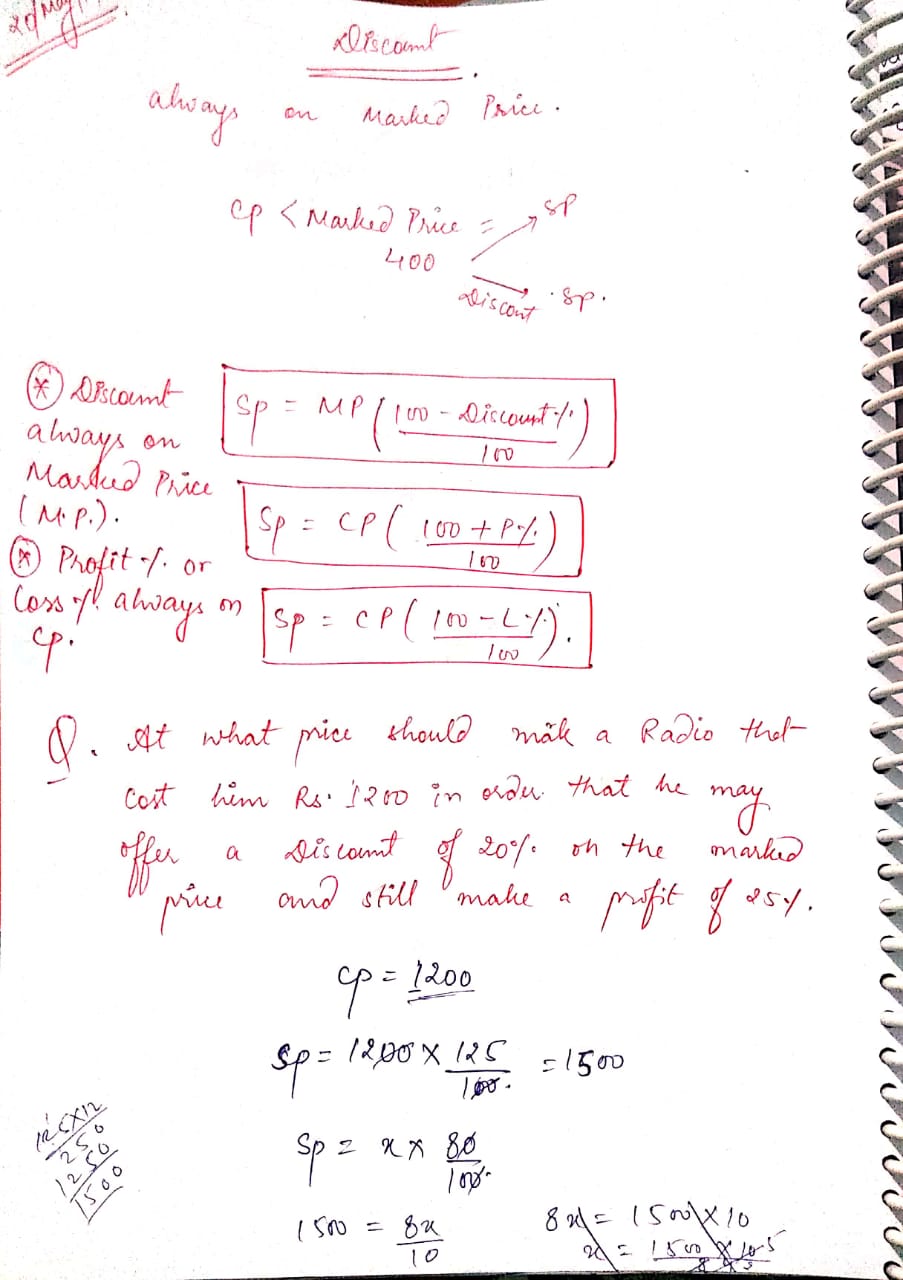 Discount
always on Marked Price.
CP < Marked Price = SP
400
Discont SP.
* Discount always on Marked Price (M.P.).
SP = MP ( 100 - Discount % / 100 )
SP = CP ( 100 + P% / 100 )
* Profit % or Loss % always on CP.
SP = CP ( 100 - L% / 100 ).
Q. At what price should mark a Radio that
cost him Rs. 1200 in order that he may
offer a Discount of 20% on the marked
price and still make a profit of 25%.
CP = 1200
SP = 1200 × 125 / 100 = 1500
125×12
250
1250
1500
SP = x × 80 / 100
1500 = 8x / 10
8x = 1500 × 10